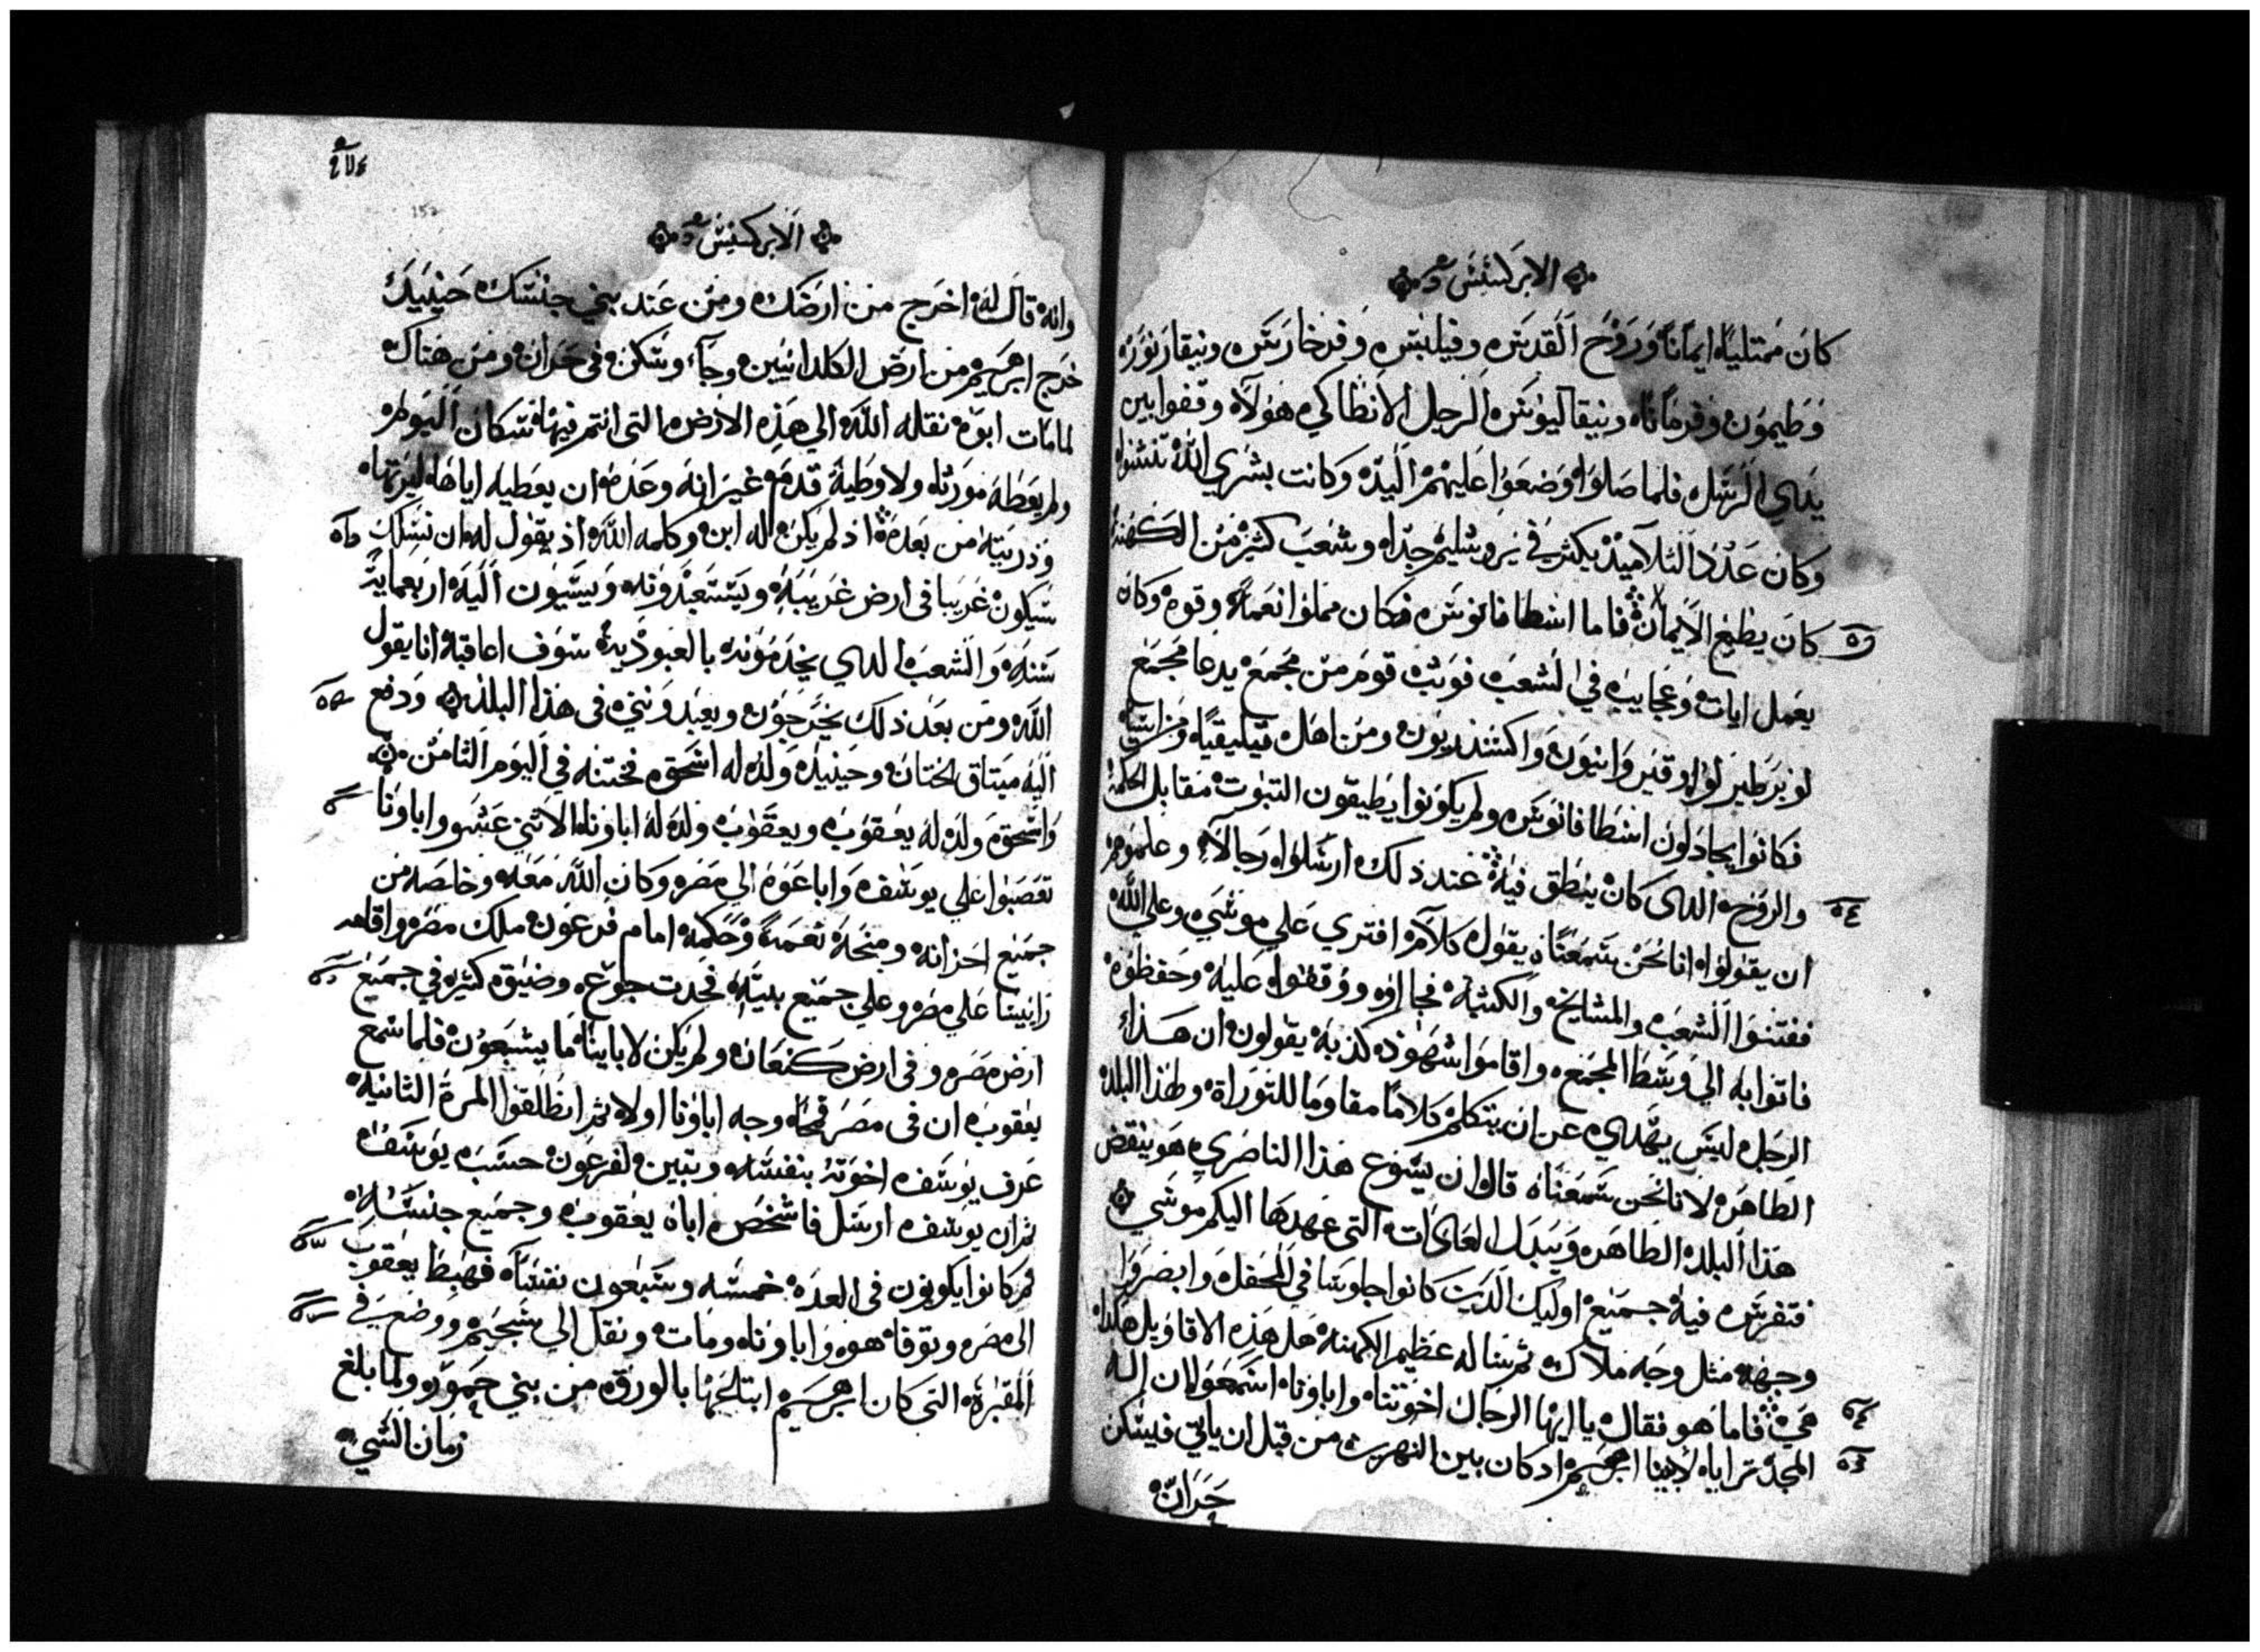 الابركسيس
كان ممتلياه ايمانا وروح القدس وفيلبس وفرخارس ونيقارنوره
وطيمون وفرماناه ونيقاليوس الرجل الانطاكي هولآه وقفوا بين
يدي الرسل فلما صلوا وضعوا عليهم اليد وكانت بشري الله تنشوا
وكان عدد التلاميذ يكثر في يروشليم جدا وشعب كثير من الكهنة
كان يطيع الايمان فاما اسطافانوس فكان مملوا نعمة وقوه وكان
يعمل ايات وعجايب في الشعب فوثب قوم من مجمع يدعا مجمع
لوبرطير لواو قيروانيون واكسندريون ومن اهل قيليقيا ومن اسيا
فكانوا يجادلون اسطافانوس ولم يكونوا يطيقون الثبوت مقابل الحكمة
والروح الدى كان ينطق فيه عند ذلك ارسلوا رجالا وعلموهم
ان يقولوا انا نحن سمعنا يقول كلام افتري علي موسي وعلي الله
ففتنوا الشعب والمشايخ والكتبه فجااوه ووقفوا عليه وحفظوه
فاتوا به الي وسط المجمع واقاموا شهود كذبه يقولون ان هذا
الرجل ليس يهدي عن ان يتكلم كلاما مقاوما للتوراة ولهذا البلد
الطاهره لانا نحن سمعناه قال ان يسوع هذا الناصري هو ينقض
هذا البلد الطاهر ويبدل العادات التي عهدها اليكم موسي
فتفرس فيه جميع اوليك الدين كانوا جلوسا في المحفل وابصروا
وجهه مثل وجه ملاك ثم سا له عظيم الكهنة هل هذه الاقاويل هكذا
هي فاما هو فقال يا ايها الرجال اخوتنا واباونا اسمعوا ان اله
المجد ترايا لابينا ابرهيم اد كان بين النهرين من قبل ان ياتي فيسكن
حران
152
الابركسيس
وانه قال له اخرج من ارضك ومن عند بني جنسك حينيذ
خرج ابرهيم من ارض الكلدانيين وجآ وسكن في حران ومن هناك
لما مات ابوه نقله الله الي هذه الارض التي انتم فيها سكان اليوم
ولم يعطه موراثا ولا وطية قدم غير انه وعده ان يعطيه اياها ليرثها
وذريته من بعده اذ لم يكن له ابن وكلمه الله اذ يقول له ان نسلك
سيكون غريبا في ارض غريبه ويستعبدونه ويسيون اليه اربعماية
سنه والشعب الدي يخدمونه بالعبودية سوف اعاقبه انا يقول
الله ومن بعد ذلك يخرجون ويعبدونني في هذا البلد ودفع
اليه ميتاق الختان وحينيذ ولد له اسحق فختنه في اليوم الثامن
واسحق ولد له يعقوب ويعقوب ولد له اباونا الاثني عشر واباونا
تعصبوا علي يوسف واباعوه الي مصر وكان الله معه وخلصه من
جميع احزانه ومنحه نعمة وحكمه امام فرعون ملك مصر واقامه
راييسا علي مصر وعلي جميع بيته فحدت جوع وضيق كثيره في جميع
ارض مصر وفي ارض كنعان ولم يكن لاباينا ما يشبعون فلما سمع
يعقوب ان في مصر قمحا وجه اباونا اولا ثم انطلقوا المرة الثانية
عرف يوسف اخوته بنفسه وتبين لفرعون حسب يوسف
ثم ان يوسف ارسل فاشخص اباه يعقوب وجميع جنسه
ثم كانوا يكونون في العده خمسه وسبعون نفسا فهبط يعقوب
الى مصر وتوفا هو واباونا ومات ونقل الي شجيم ووضع في
المقبرة التي كان ابرهيم ابتاعها بالورق من بني حمور ولما بلغ
زمان الشي